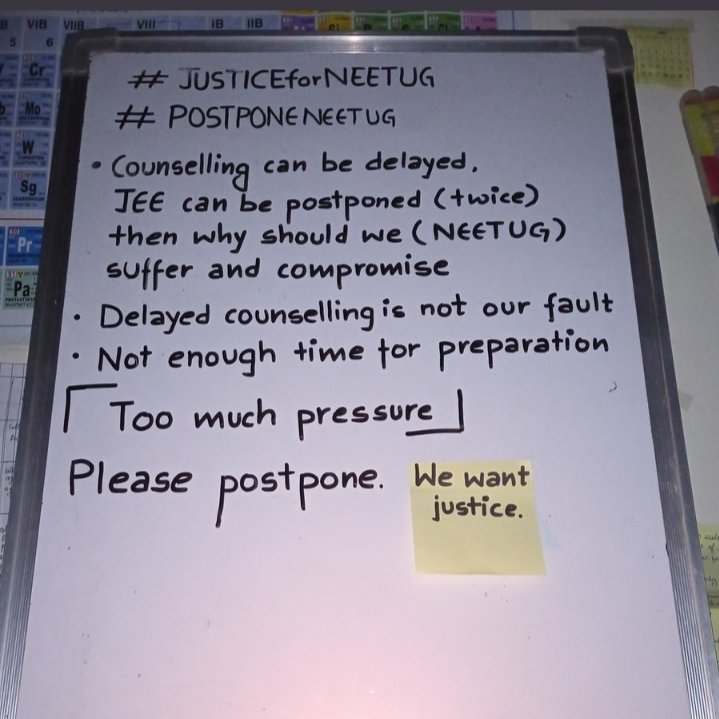 VIB VIIB VIII IB IIB
5 6
Cr
Mo
W
Sg
Pr
Pa
# JUSTICEforNEETUG
# POSTPONENEETUG
• Counselling can be delayed.
JEE can be postponed (twice)
then why should we (NEETUG)
suffer and compromise
• Delayed counselling is not our fault
• Not enough time for preparation
Too much pressure
Please postpone.
We want
justice.